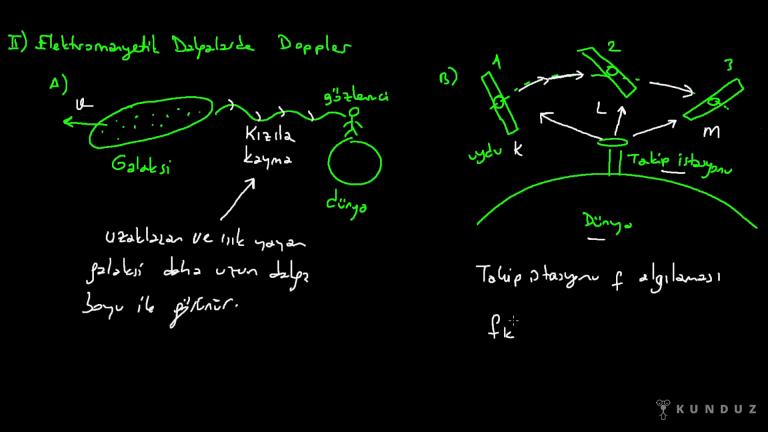 II) Elektromanyetik Dalgalarda Doppler
A)
v
Galaksi
Kızıla
kayma
gözlemci
dünya
uzaklaşan ve ışık yayan
galaksi daha uzun dalga
boyu ile görünür.
B)
1
2
3
uydu K
L
M
Takip istasyonu
Dünya
Takip istasyonu f algılaması
fK
KUNDUZ